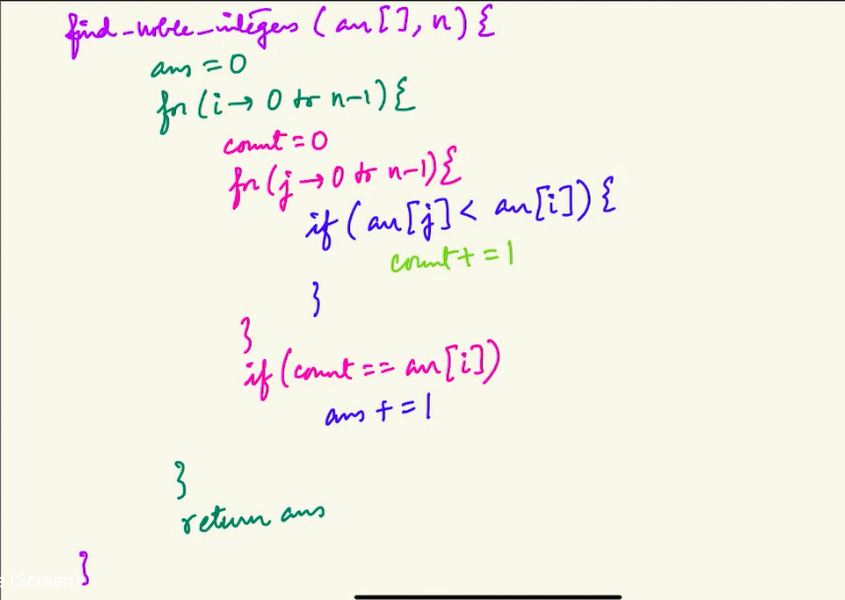 find_noble_integers (arr[], n) {
ans = 0
for (i → 0 to n-1) {
count = 0
for (j → 0 to n-1) {
if (arr[j] < arr[i]) {
count += 1
}
}
if (count == arr[i])
ans += 1
}
return ans
}
(Screen)